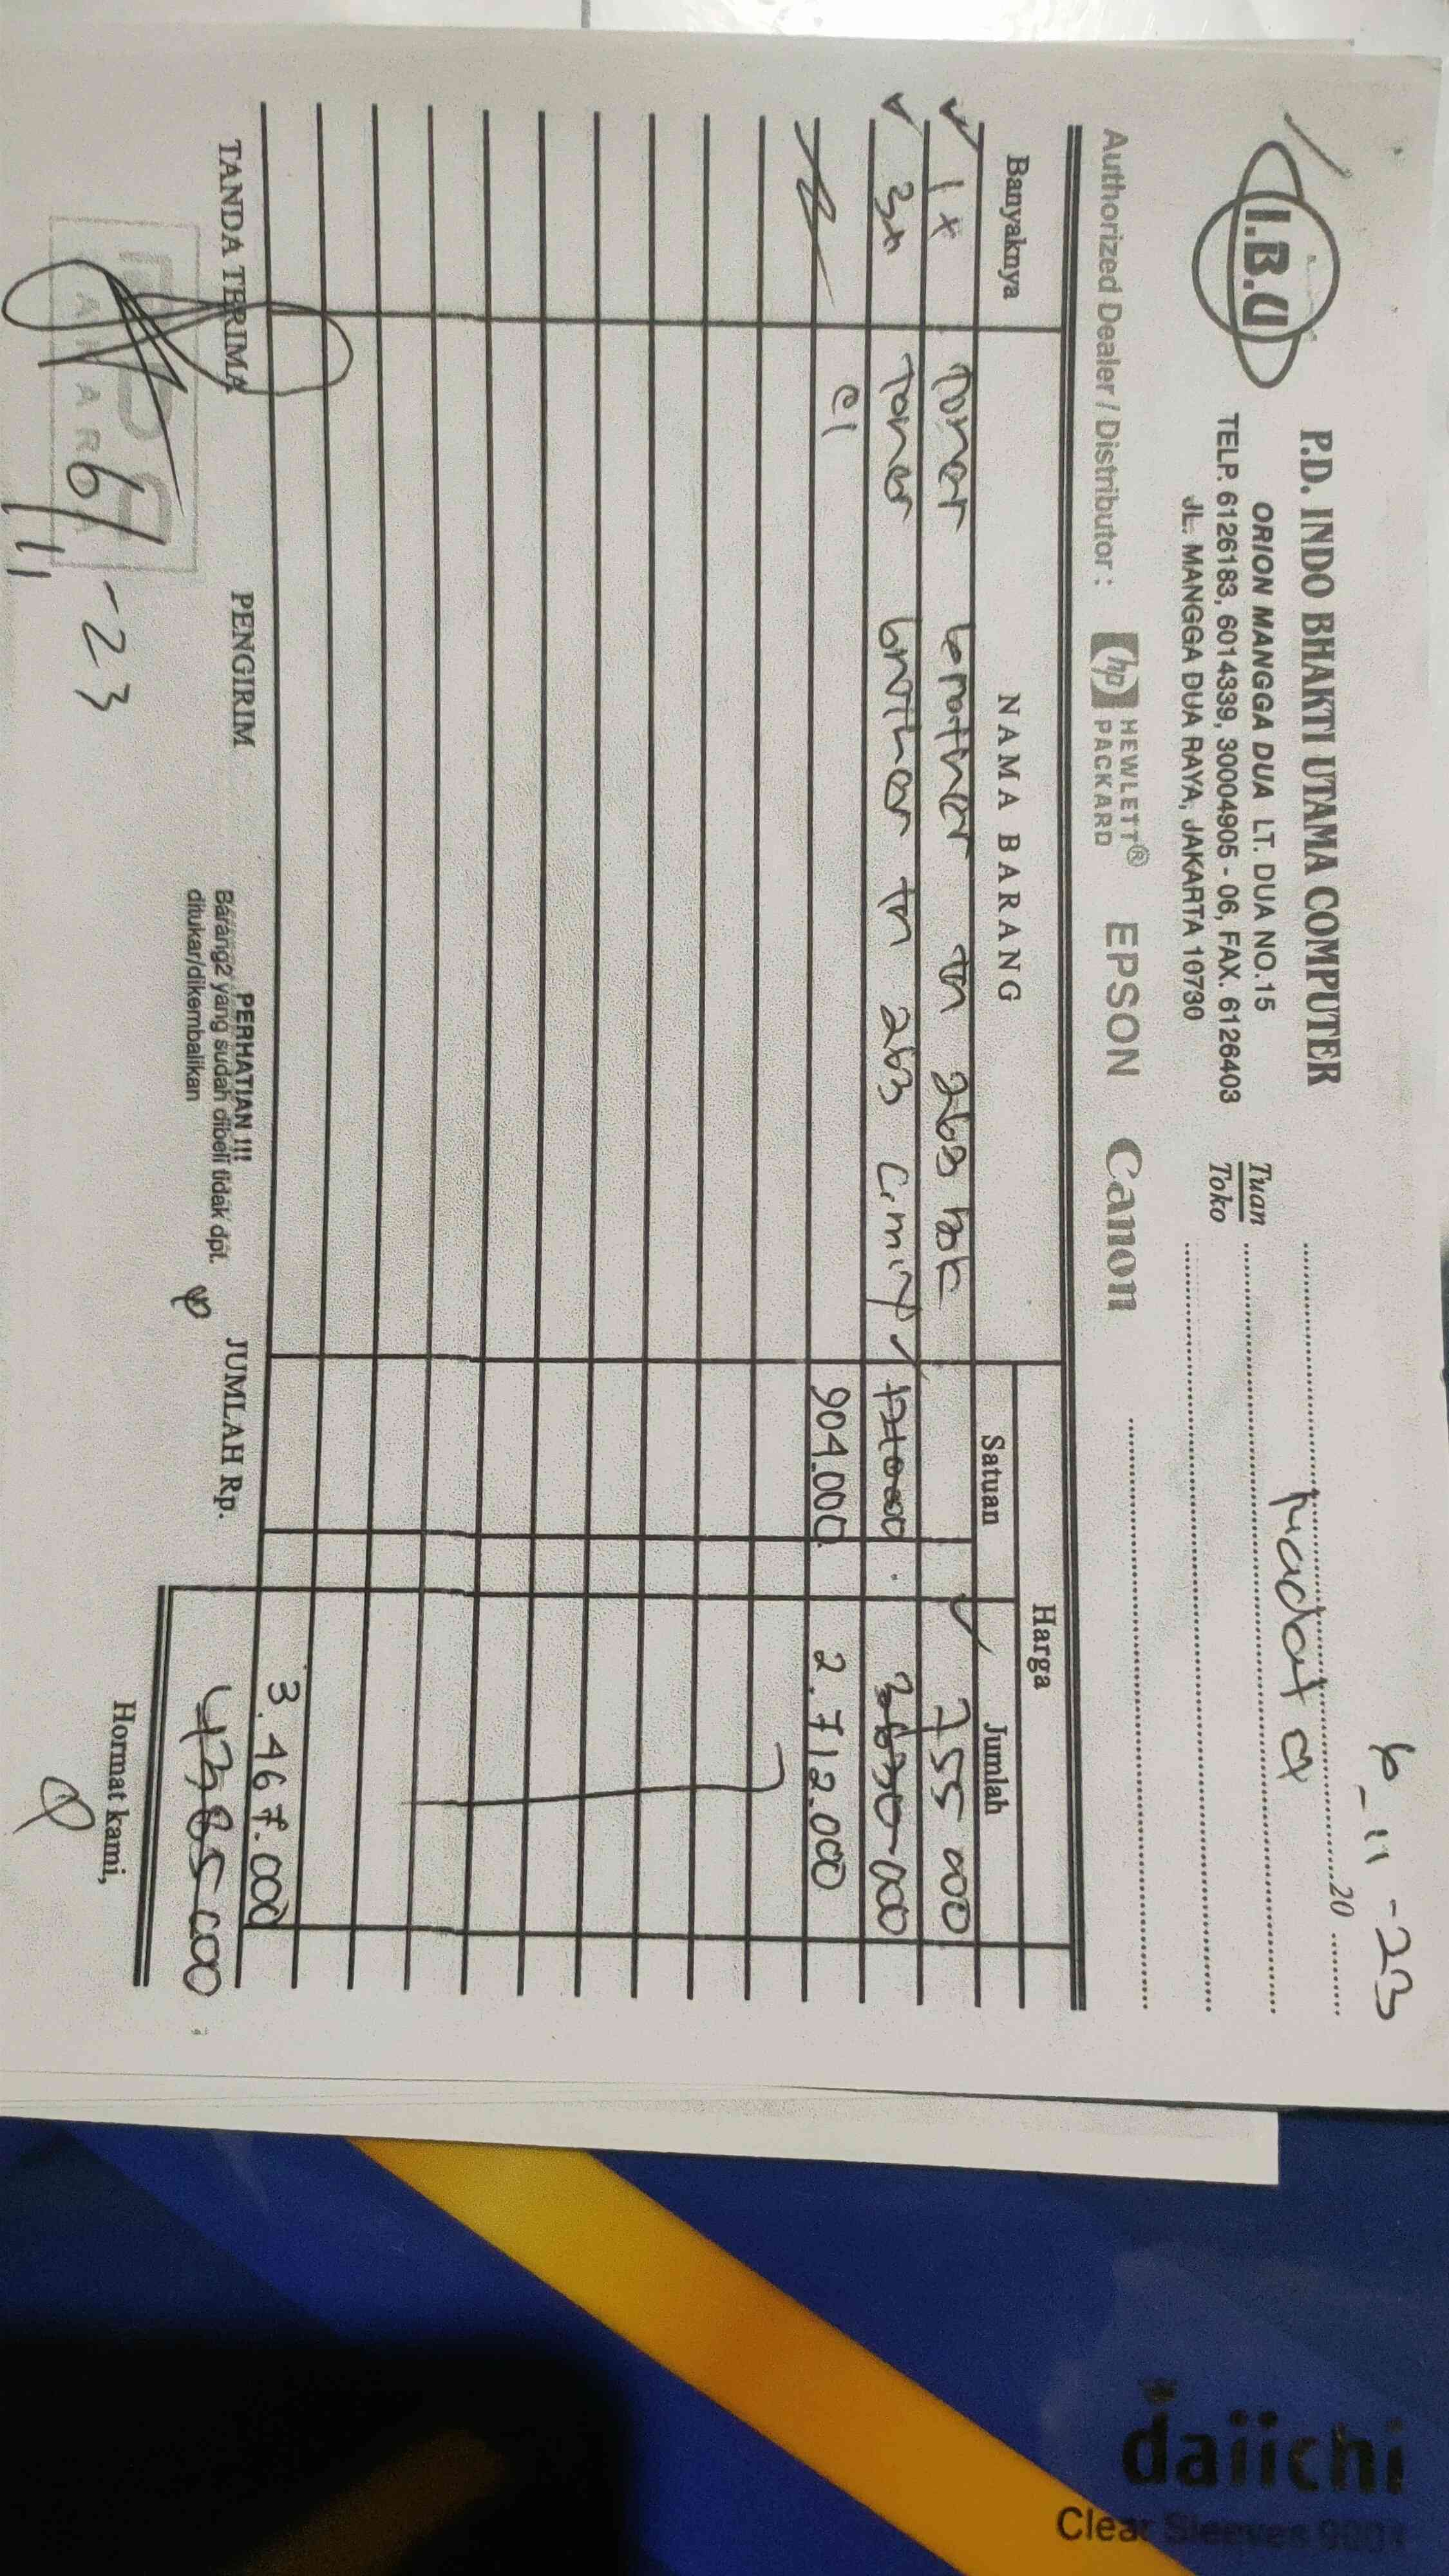 6-11-23
I.B.U
P.D. INDO BHAKTI UTAMA COMPUTER
ORION MANGGA DUA LT. DUA NO.15
TELP. 6126183, 6014339, 30004905 - 06, FAX. 6126403
JL. MANGGA DUA RAYA, JAKARTA 10730
20
Tuan
Toko
Authorized Dealer / Distributor :
hp HEWLETT® PACKARD
EPSON
Canon
Banyaknya NAMA BARANG Harga
Satuan Jumlah
1x Toner brother tn 263 755 000
3x Toner brother tn 263 c, m, y
904.000 2.712.000
3.467.000
TANDA TERIMA PENGIRIM PERHATIAN !!! JUMLAH Rp. 4385 000
Barang2 yang sudah dibeli tidak dpt.
ditukar/dikembalikan
Hormat kami,
6/11-23
daiichi
Clear Sleeves